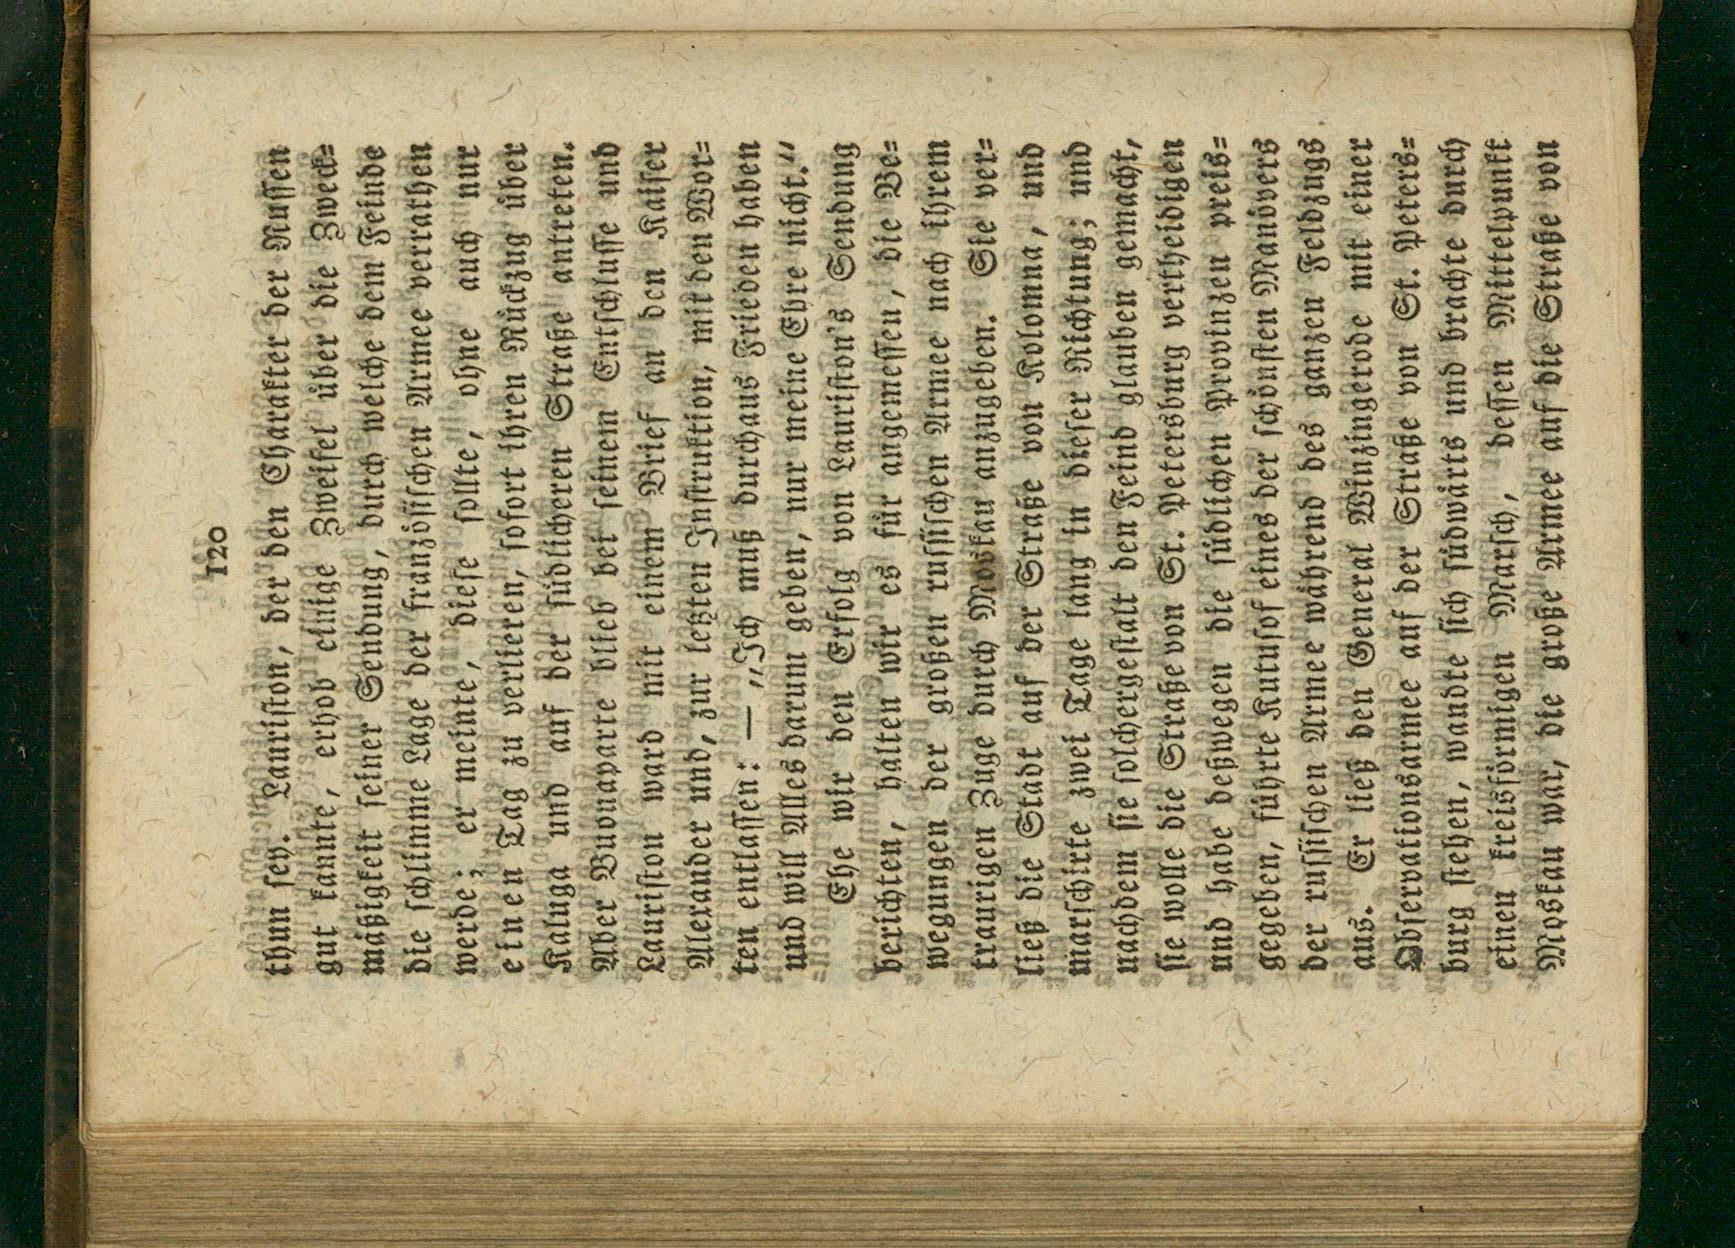 120
thum sey. Lauriston, der den Charakter der Russen
gut kannte, erhob einige Zweifel über die Zweck=
mäßigkeit seiner Sendung, durch welche dem Feinde
die schlimme Lage der französischen Armee verrathen
werde; er meinte, diese sollte, ohne auch nur
einen Tag zu verlieren, sofort ihren Rückzug über
Kaluga und auf der südlicheren Straße antreten.
Aber Buonaparte blieb bei seinem Entschlusse und
Lauriston ward mit einem Brief an den Kaiser
Alexander und, zur letzten Instruktion, mit den Wor=
ten entlassen: — „Ich muß durchaus Frieden haben
und will Alles darum geben, nur meine Ehre nicht.„
Ehe wir den Erfolg von Lauriston's Sendung
berichten, halten wir es für angemessen, die Be=
wegungen der großen russischen Armee nach ihrem
traurigen Zuge durch Moskau anzugeben. Sie ver=
ließ die Stadt auf der Straße von Kolomna, und
marschirte zwei Tage lang in dieser Richtung; und
nachdem sie solchergestalt den Feind glauben gemacht,
sie wolle die Straße von St. Petersburg vertheidigen
und habe deßwegen die südlichen Provinzen preis=
gegeben, führte Kutusof eines der schönsten Manövers
der russischen Armee während des ganzen Feldzugs
aus. Er ließ den General Winzingerode mit einer
Observationsarmee auf der Straße von St. Peters=
burg stehen, wandte sich südwärts und brachte durch
einen kreisförmigen Marsch, dessen Mittelpunkt
Moskau war, die große Armee auf die Straße von